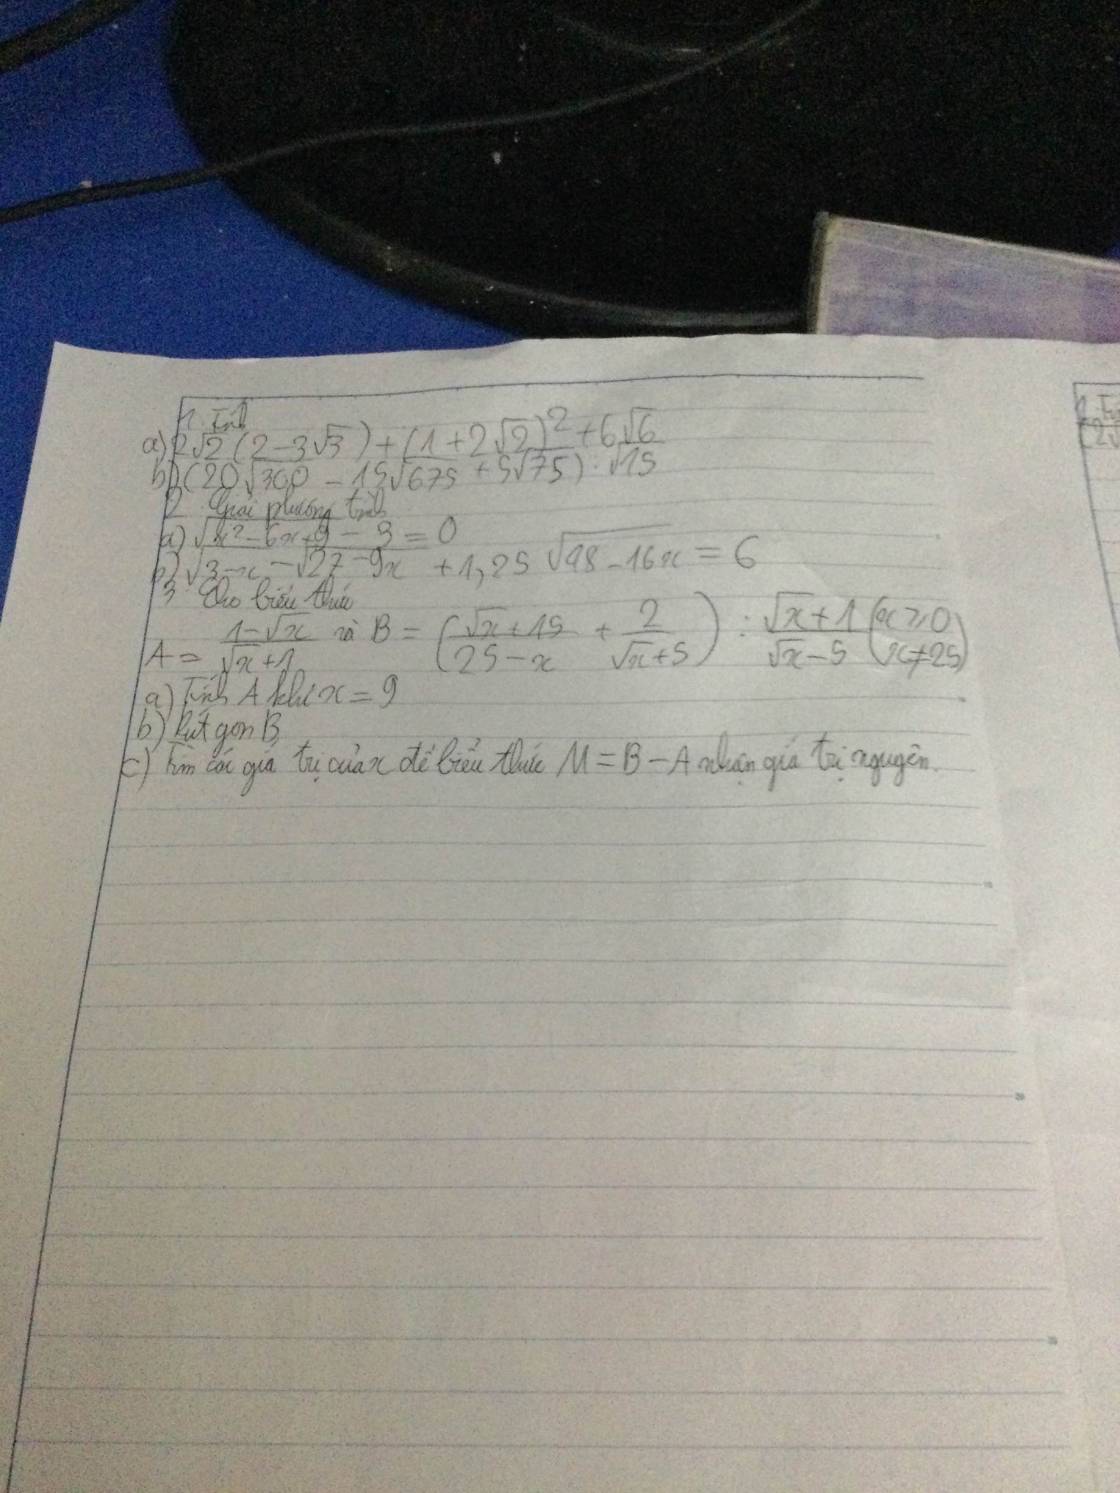 1. Tính
a) 2√2(2-3√3)+(1+2√2)²+6√6
b) (20√300 - 15√675 + 5√75) : √15
2 Giải phương trình
a) √x²-6x+9 - 3 = 0
b) √3-x - √27-9x + 1,25 √48-16x = 6
3. Cho biểu thức
A = (1-√x)/(√x+1) và B = ((√x+15)/(25-x) + 2/(√x+5)) : (√x+1)/(√x-5) (x≥0 x≠25)
a) Tính A khi x = 9
b) Rút gọn B
c) Tìm các giá trị của x để biểu thức M = B - A nhận giá trị nguyên.